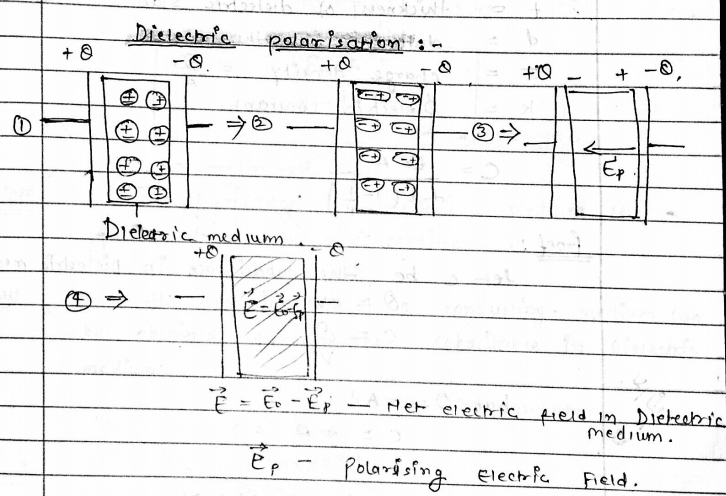 Dielectric polarisation :-
+Q -Q. +Q -Q +Q - + -Q.
① ⇒ ② ③ ⇒
+ +
+ +
+ +
+ +
-+ -+
-+ -+
-+ -+
-+ -+
Ep.
Dielectric medium
+Q - Q
④ ⇒ E⃗ = E⃗o-E⃗p
E⃗ = E⃗o - E⃗p - Net electric field in Dielectric
medium.
E⃗p - Polarising Electric Field.